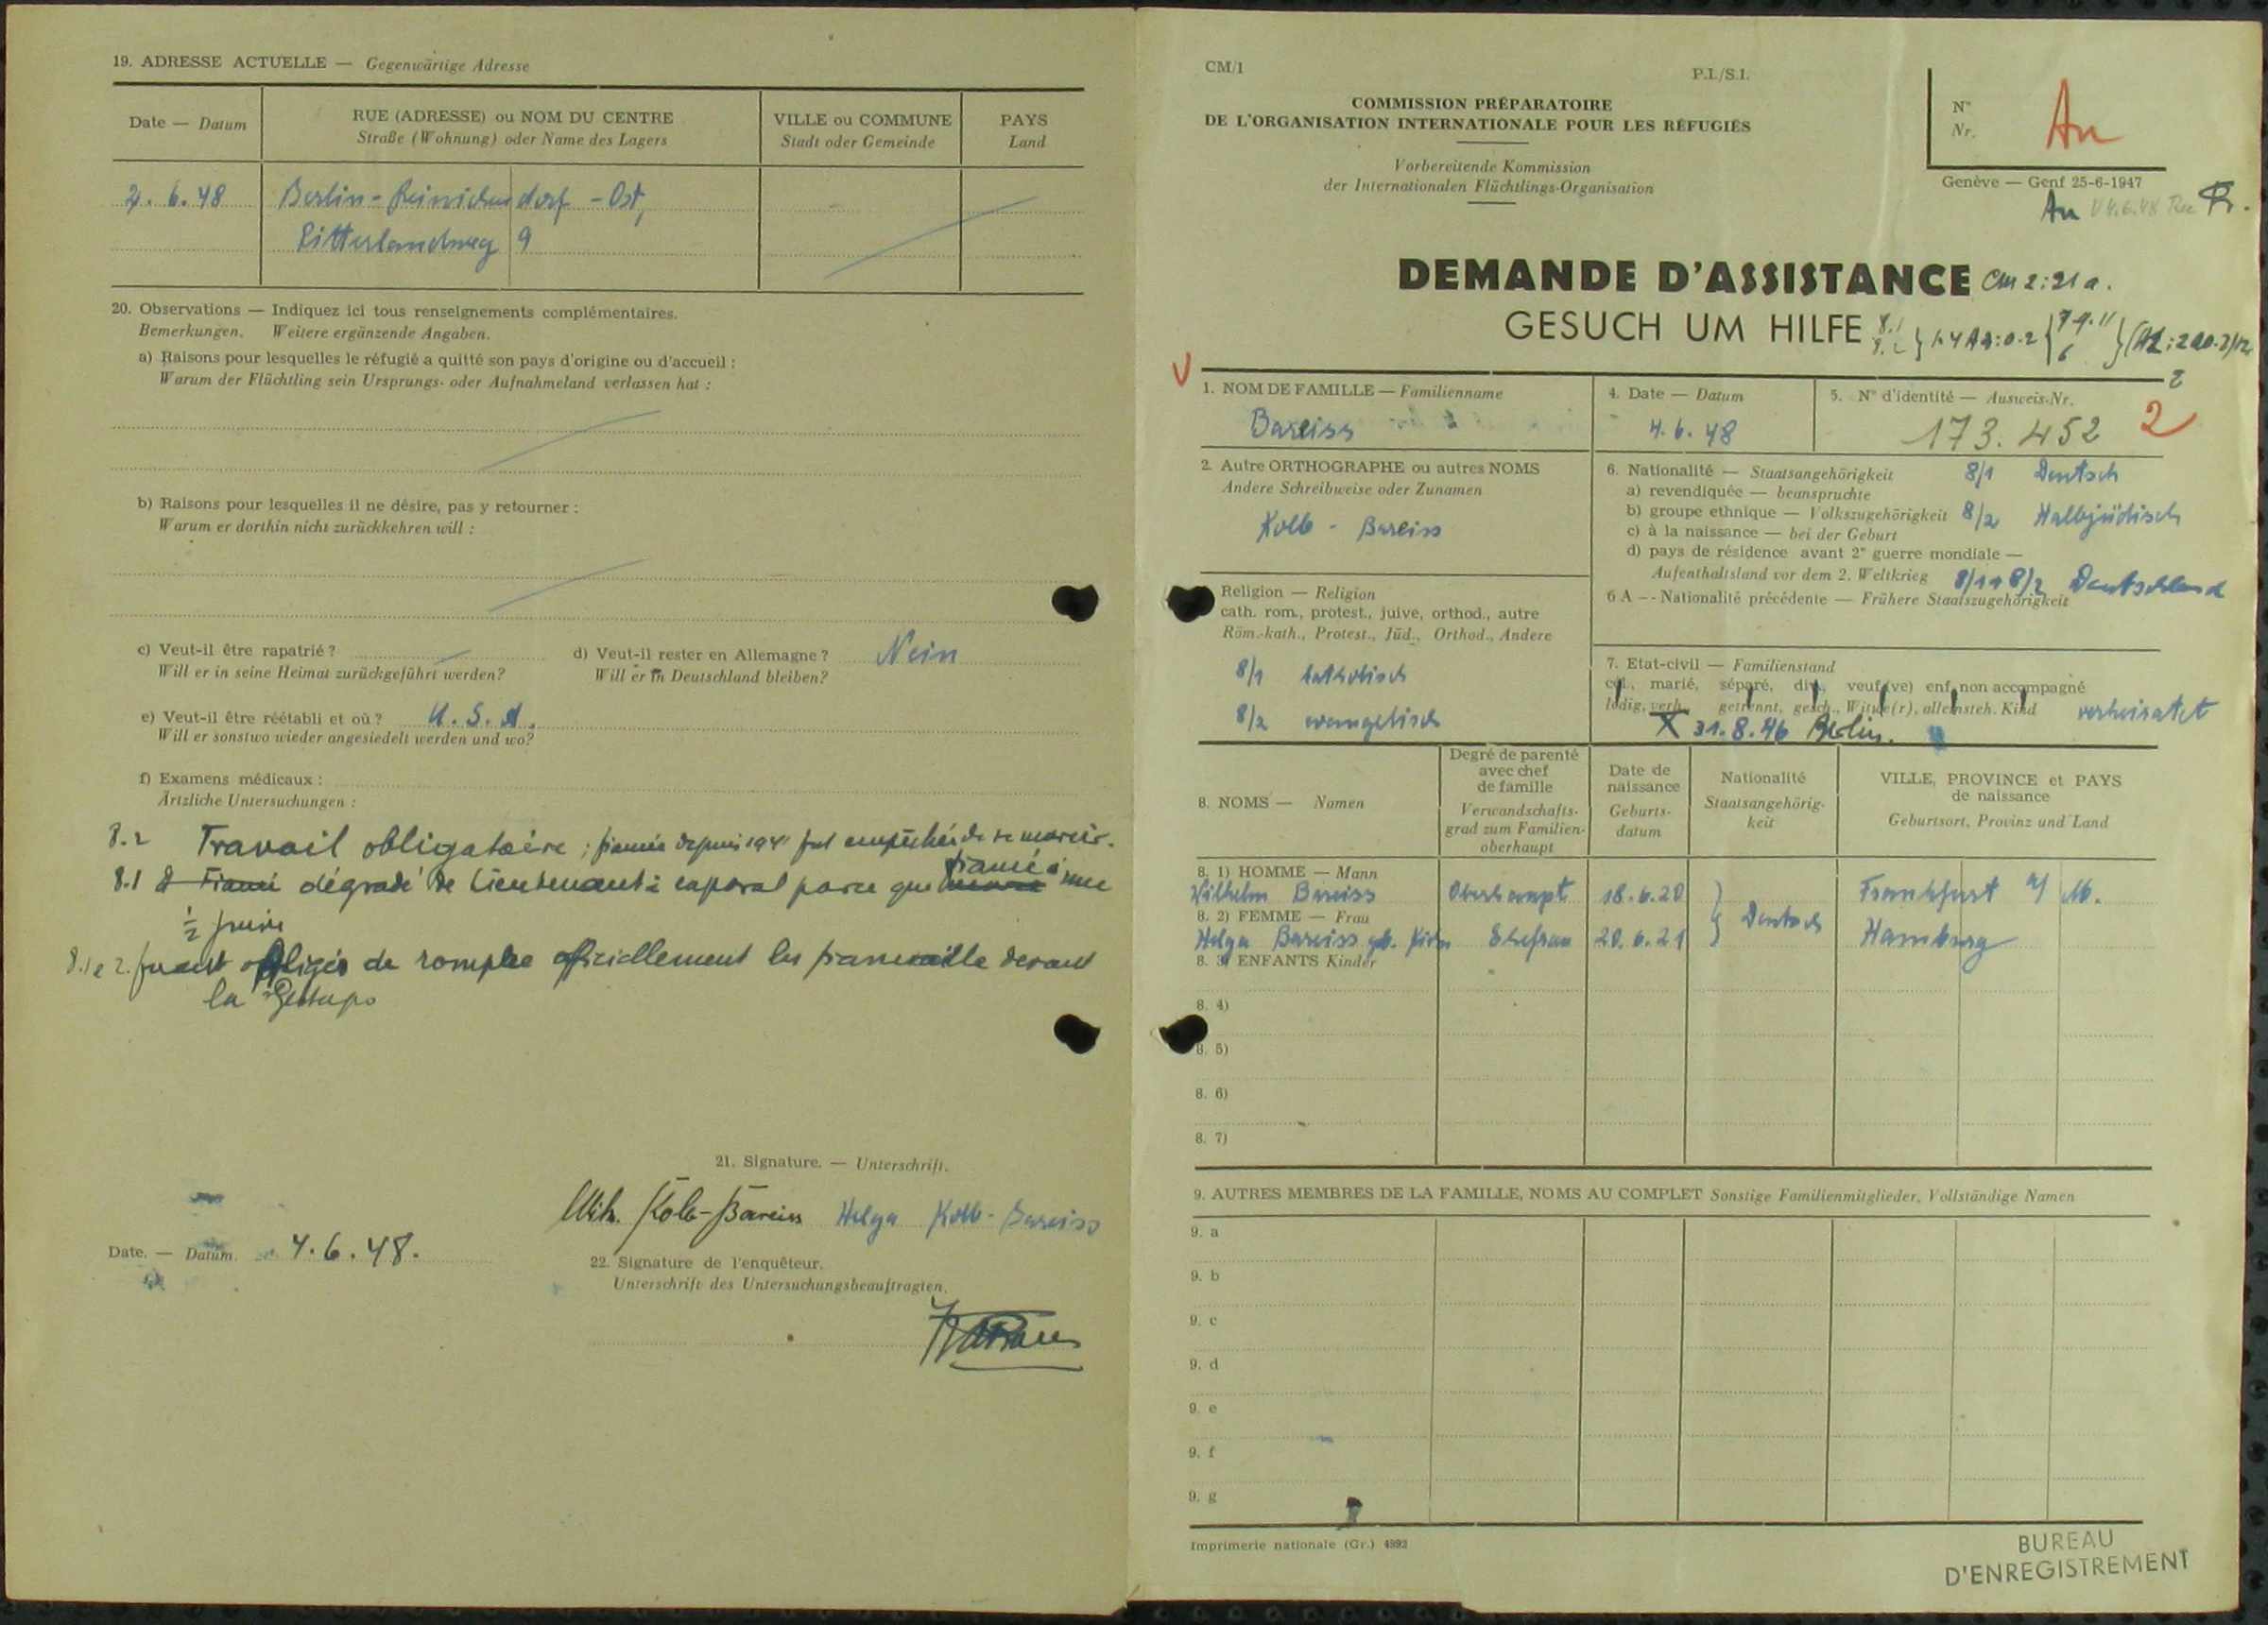 19. ADRESSE ACTUELLE — Gegenwärtige Adresse
Date — Datum
RUE (ADRESSE) ou NOM DU CENTRE
Straße (Wohnung) oder Name des Lagers
VILLE ou COMMUNE
Stadt oder Gemeinde
PAYS
Land
2. 6. 48 Berlin - Reinickendorf - Ost,
9
20. Observations — Indiquez ici tous renseignements complémentaires.
Bemerkungen. Weitere ergänzende Angaben.
a) Raisons pour lesquelles le réfugié a quitté son pays d'origine ou d'accueil :
Warum der Flüchtling sein Ursprungs- oder Aufnahmeland verlassen hat :
b) Raisons pour lesquelles il ne désire, pas y retourner :
Warum er dorthin nicht zurückkehren will :
c) Veut-il être rapatrié ?
Will er in seine Heimat zurückgeführt werden?
d) Veut-il rester en Allemagne ? Nein
Will er in Deutschland bleiben?
e) Veut-il être réétabli et où ? U. S. A.
Will er sonstwo wieder angesiedelt werden und wo?
f) Examens médicaux :
Ärtzliche Untersuchungen :
8.2 Travail obligatoire ; depuis fut de se marier.
8.1 dégradé de Lieutenant à caporal parce que fiancé à une
½ juive
8.1 e 2. obligés de rompre officiellement les devant
la Gestapo
21. Signature. — Unterschrift.
Wilh. Kolb-Bareiss Helga Kolb-Bareiss
Date. — Datum. 4. 6. 48.
22. Signature de l'enquêteur.
Unterschrift des Untersuchungsbeauftragten.
CM/1
P.I./S.I.
COMMISSION PRÉPARATOIRE
DE L'ORGANISATION INTERNATIONALE POUR LES RÉFUGIÉS
Vorbereitende Kommission
der Internationalen Flüchtlings-Organisation
N°
Nr.
An
Genève — Genf 25-6-1947
An
DEMANDE D'ASSISTANCE CM 2:21 a.
GESUCH UM HILFE
1. NOM DE FAMILLE — Familienname
Bareiss
4. Date — Datum
4. 6. 48
5. N° d'identité — Ausweis-Nr.
173.452 2
2. Autre ORTHOGRAPHE ou autres NOMS
Andere Schreibweise oder Zunamen
Kolb - Bareiss
6. Nationalité — Staatsangehörigkeit 8/1 Deutsch
a) revendiquée — beanspruchte
b) groupe ethnique — Volkszugehörigkeit 8/2 Halbjüdisch
c) à la naissance — bei der Geburt
d) pays de résidence avant 2e guerre mondiale —
Aufenthaltsland vor dem 2. Weltkrieg 8/1 + 8/2 Deutschland
6 A — Nationalité précédente — Frühere Staatszugehörigkeit
Religion — Religion
cath. rom., protest., juive, orthod., autre
Röm.-kath., Protest., Jüd., Orthod., Andere
8/1 katholisch
8/2 evangelisch
7. Etat-civil — Familienstand
cél., marié, séparé, div., veuf (ve) enf. non accompagné
ledig, verh., getrennt, gesch., Witwe(r), alleinsteh. Kind verheiratet
X 31. 8. 46 Berlin.
8. NOMS — Namen
Degré de parenté
avec chef
de famille
Verwandschafts-
grad zum Familien-
oberhaupt
Date de
naissance
Geburts-
datum
Nationalité
Staatsangehörig-
keit
VILLE, PROVINCE et PAYS
de naissance
Geburtsort, Provinz und Land
8. 1) HOMME — Mann
Wilhelm Bareiss Oberhaupt 18. 6. 20 Frankfurt a/ M.
8. 2) FEMME — Frau
Helga Bareiss gb. Ehefrau 20. 6. 21 Deutsch Hamburg
8. 3) ENFANTS Kinder
8. 4)
8. 5)
8. 6)
8. 7)
9. AUTRES MEMBRES DE LA FAMILLE, NOMS AU COMPLET Sonstige Familienmitglieder, Vollständige Namen
9. a
9. b
9. c
9. d
9. e
9. f
9. g
Imprimerie nationale (Gr.) 4992
BUREAU
D'ENREGISTREMENT